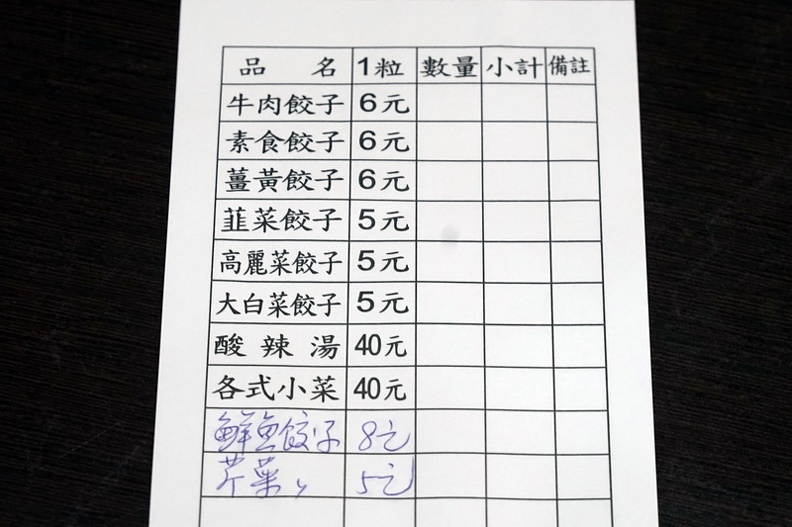 品 名 1粒 數量 小計 備註
牛肉餃子 6元
素食餃子 6元
薑黃餃子 6元
韮菜餃子 5元
高麗菜餃子 5元
大白菜餃子 5元
酸辣湯 40元
各式小菜 40元
鮮魚餃子 8元
芹菜〃 5元